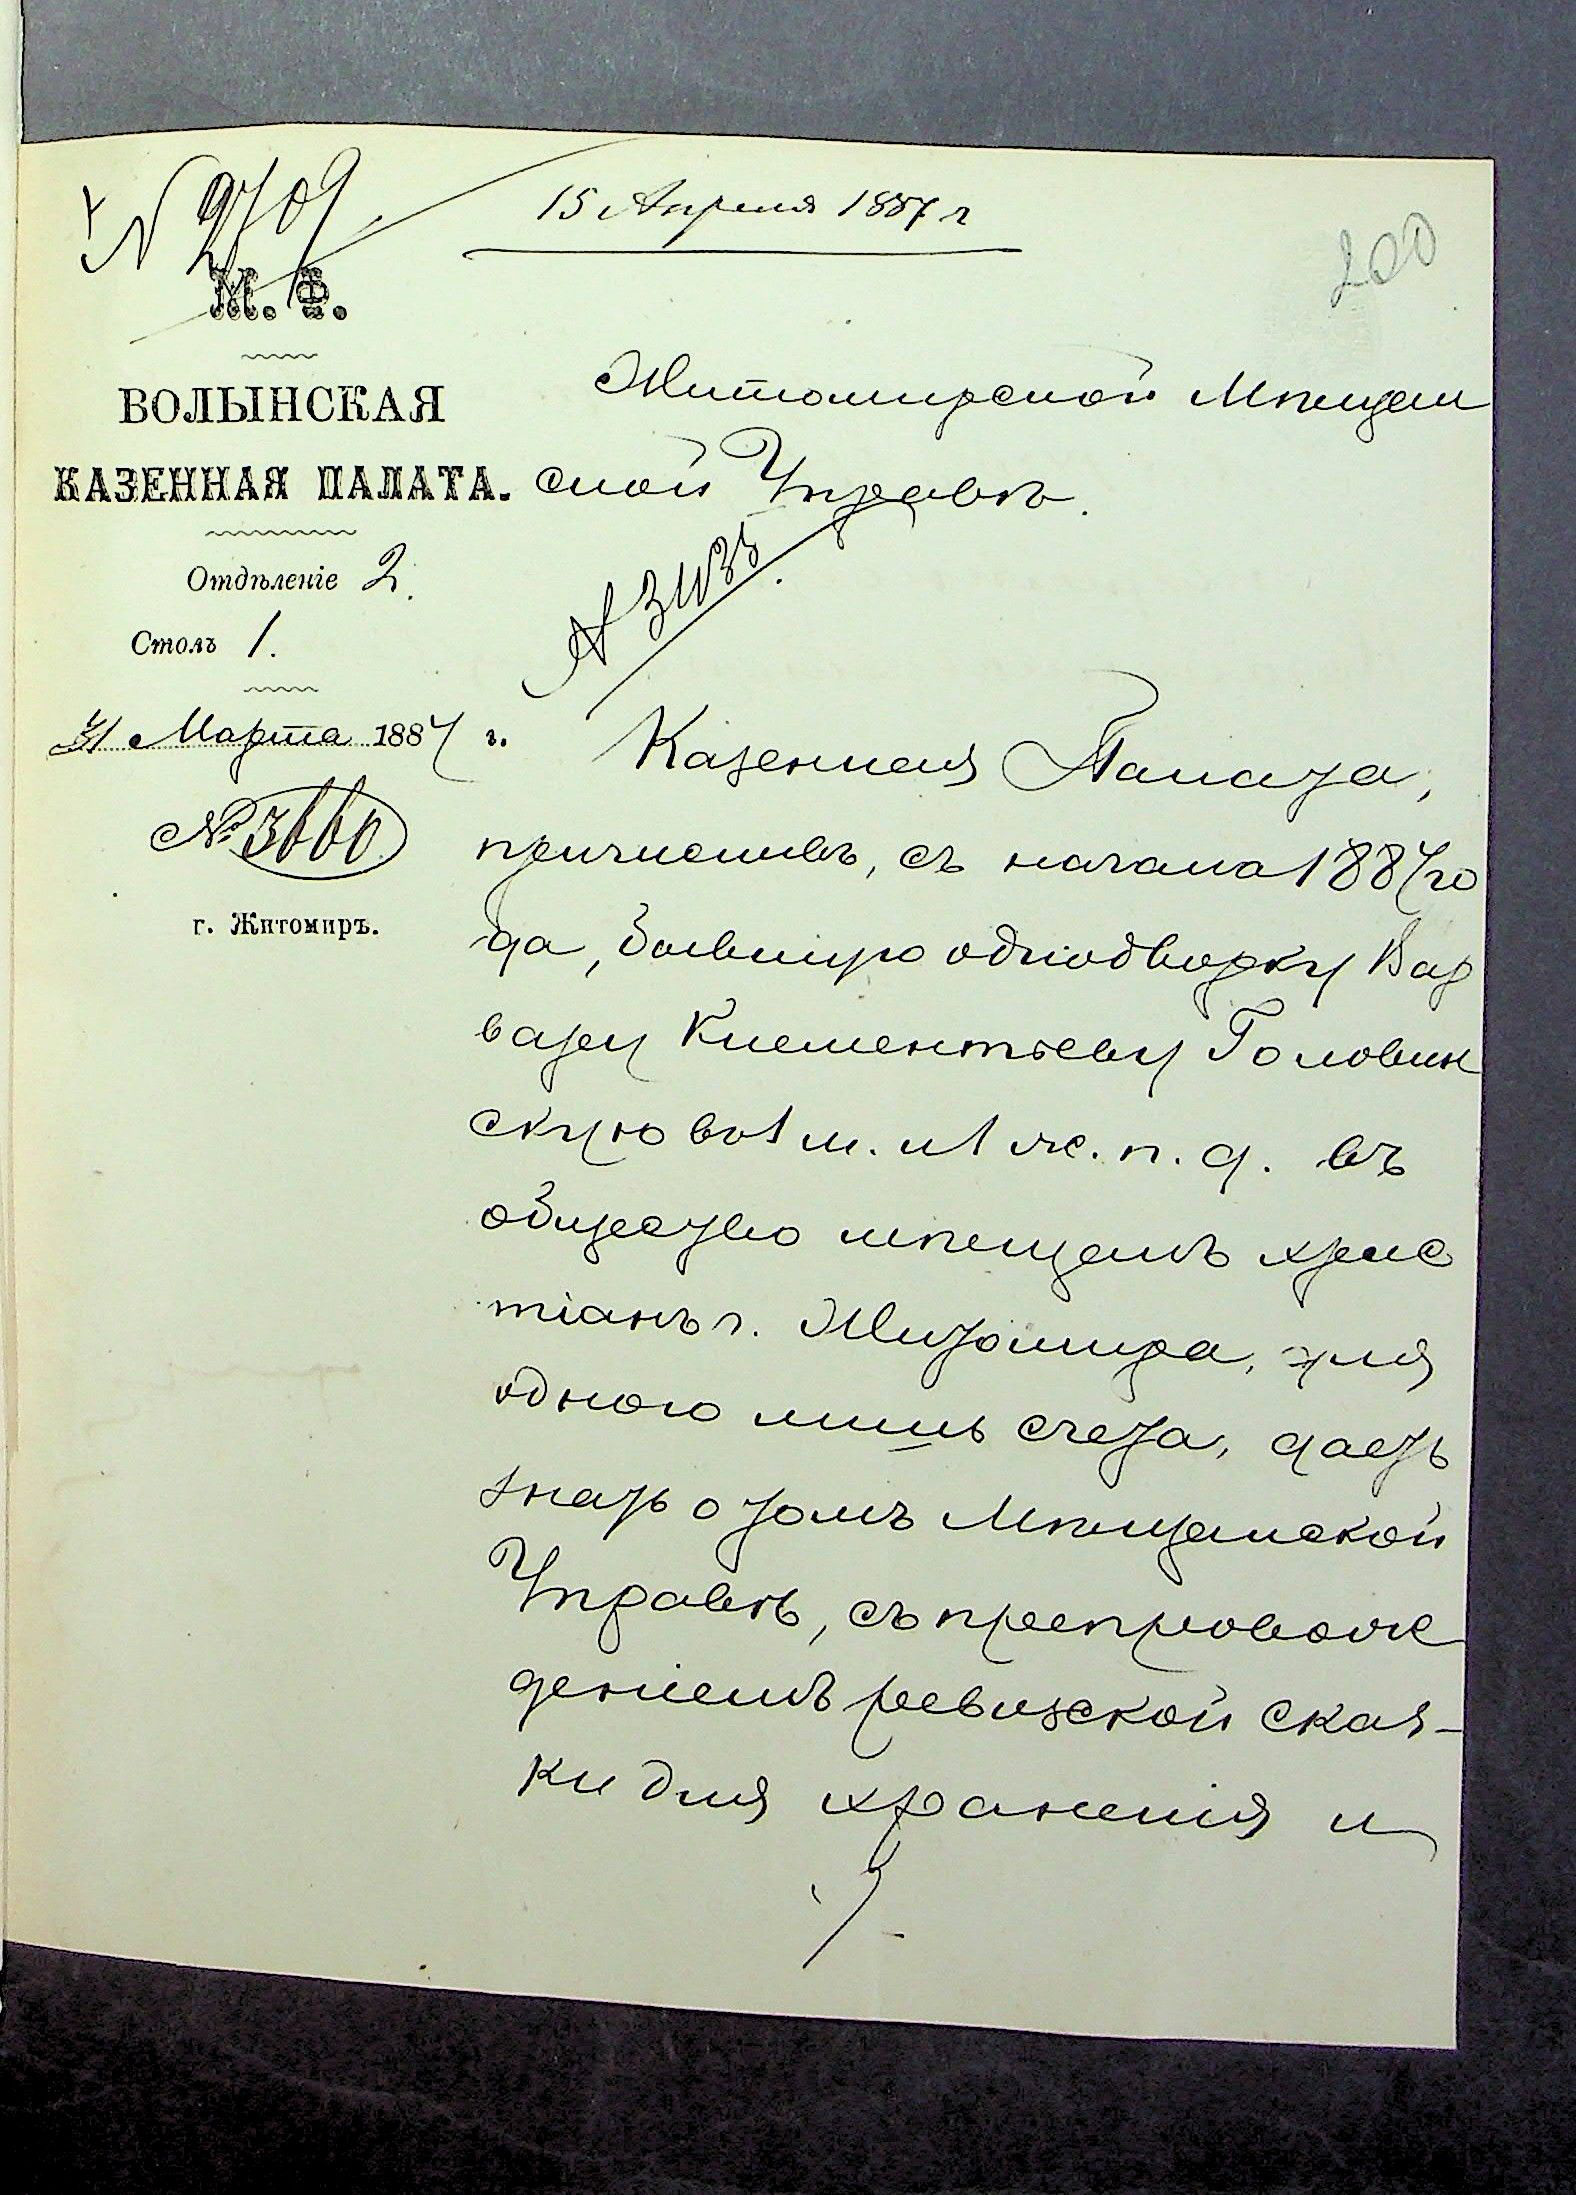 № 2709
15 Апреля 1887 г
200
М. Ф.
ВОЛЫНСКАЯ
КАЗЕННАЯ ПАЛАТА.
Отдѣленіе 2.
Столъ 1.
31 Марта 1887 г.
№ 3660.
г. Житомиръ.
Житомирской Мѣщан
ской Управѣ.
Казенная Палата,
причисливъ, съ начала 1887 го
да, бывшую однодворку Вар
вару Клементьеву Головин
скую во 1 м. и 1 ж. п. д. въ
общество мѣщанъ хрис
тіанъ г. Житомира, для
одного лишь счета, даетъ
знать о томъ Мѣщанской
Управѣ, съ препровож
деніемъ ревизской сказ-
ки для храненія и